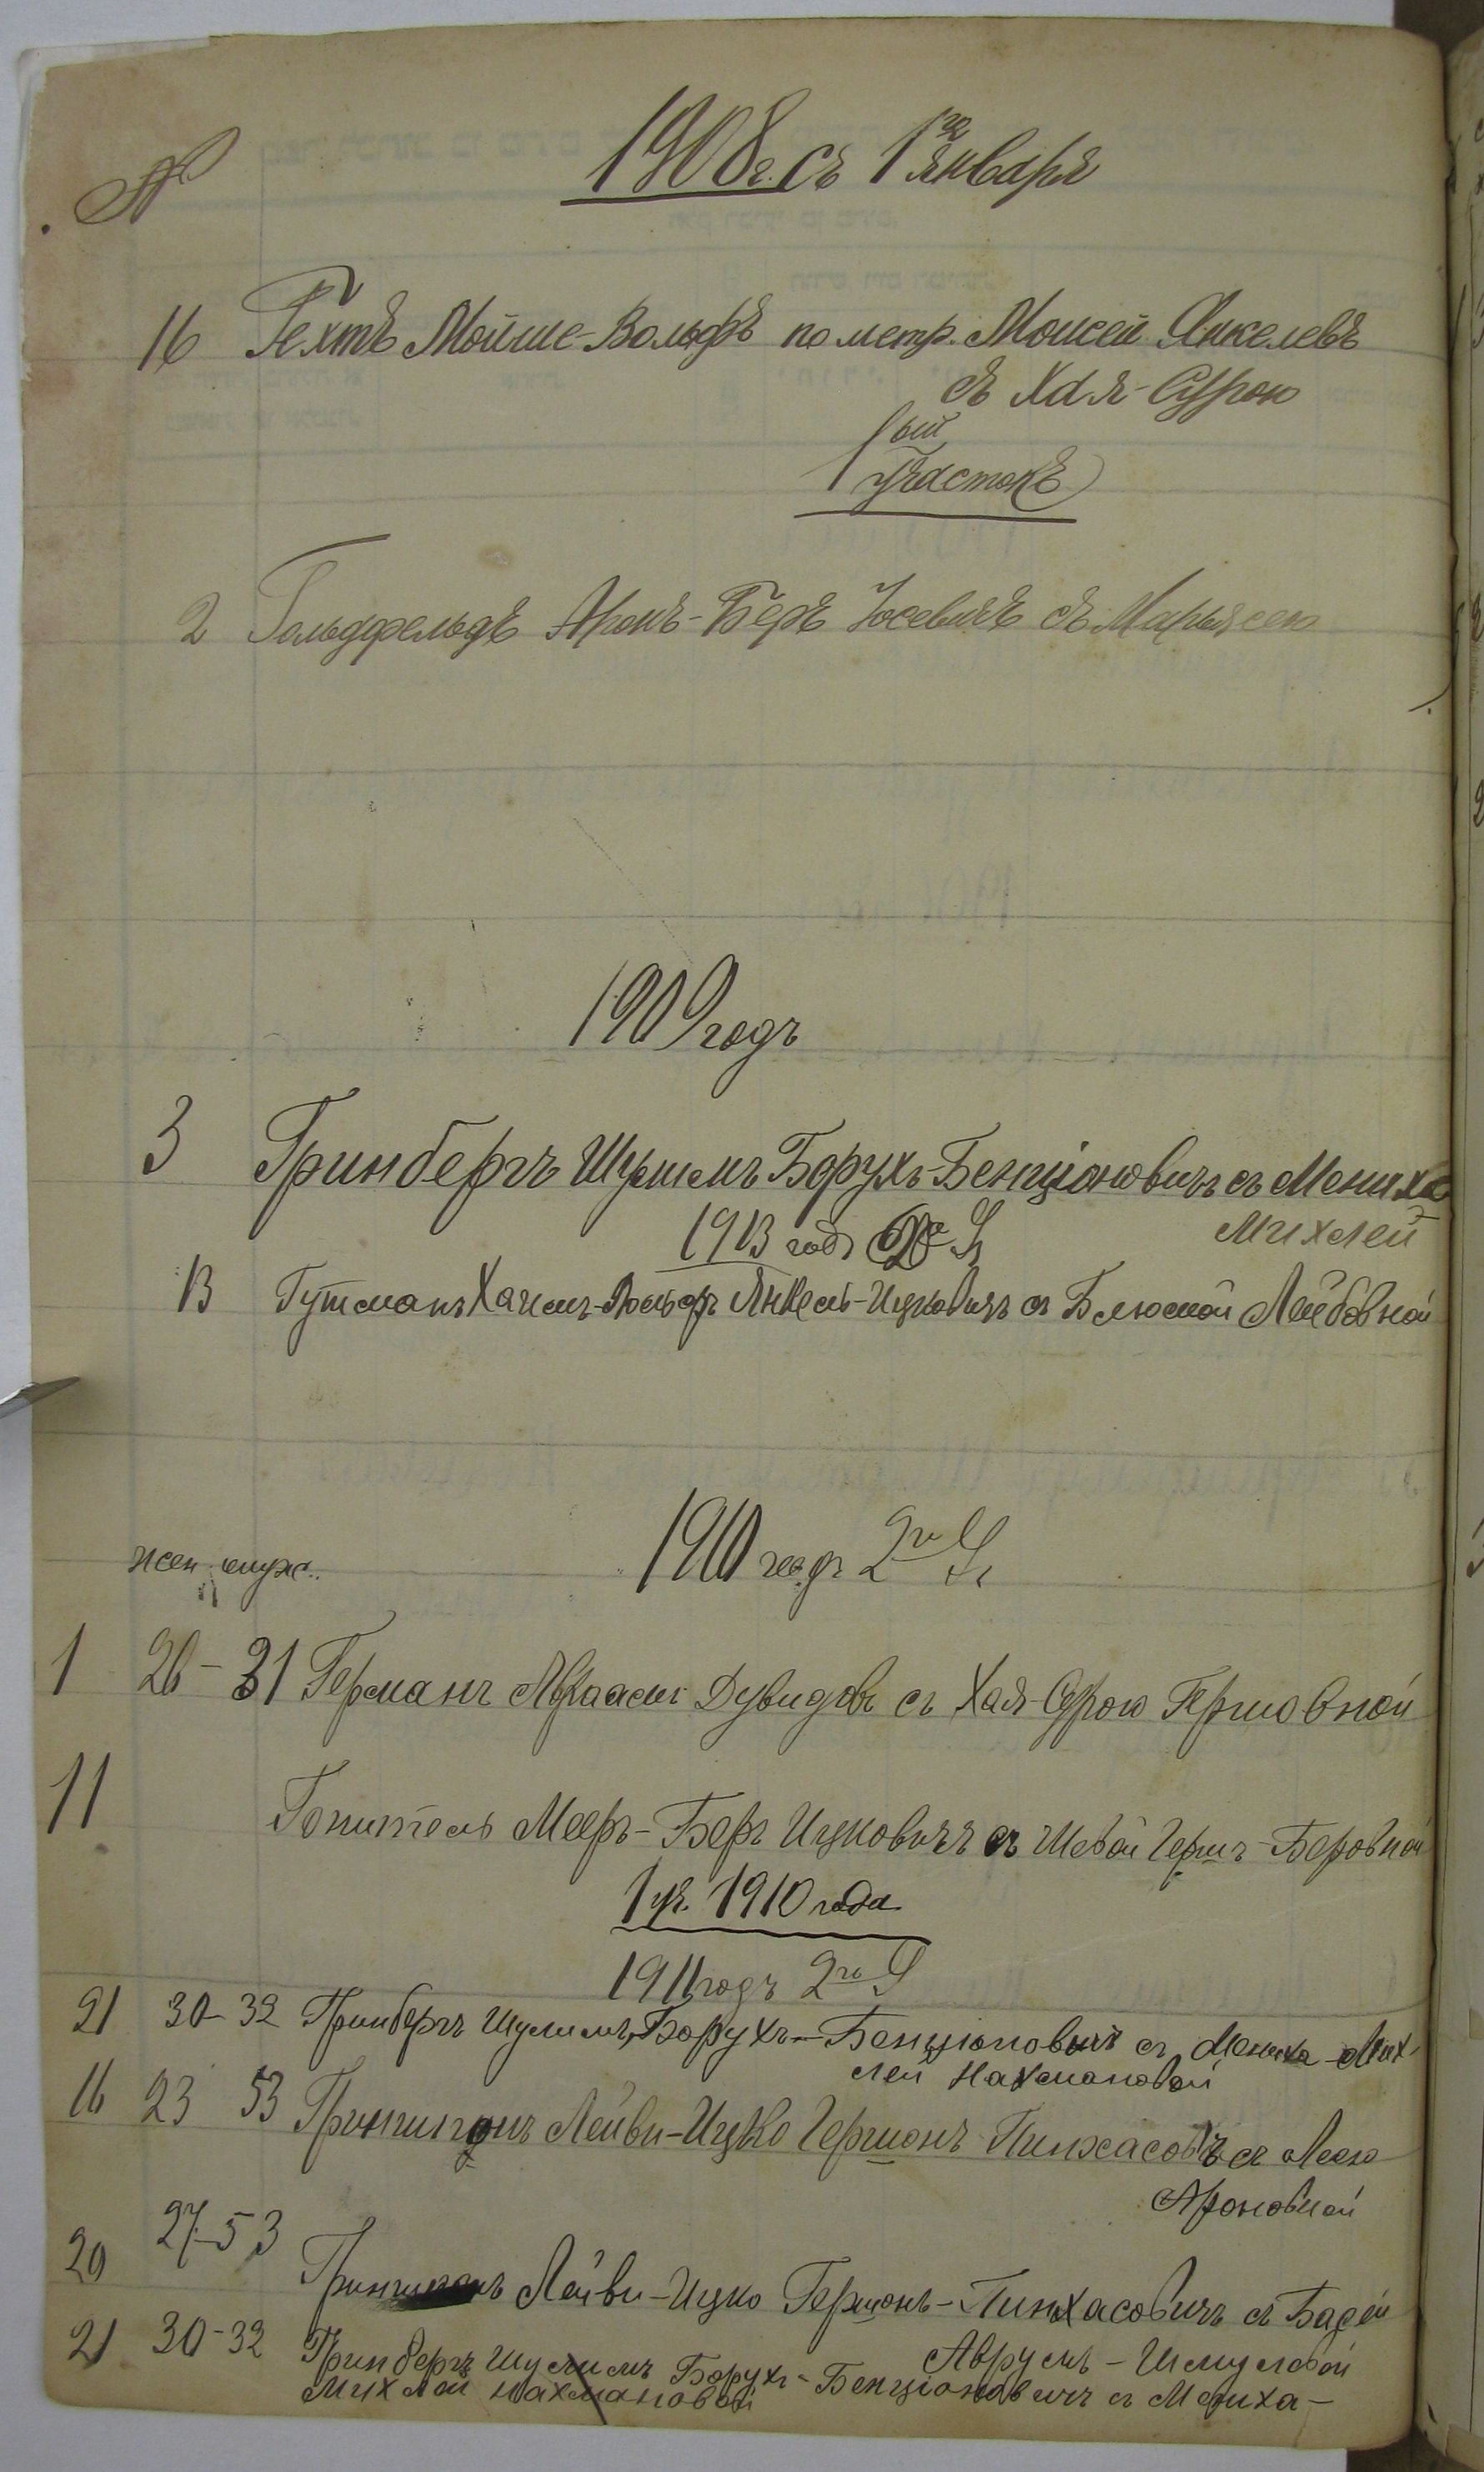 № 1908 г. съ 1го Января
16 Гехтъ Мойше-Вольфъ по метр. Моисей Янкелевъ
съ Хая-Сурою
1ый участокъ
2 Гольдфельдъ Аронъ-Беръ Іосевичъ съ Марьясею
1909 годъ
3 Гринбергъ Шулимъ Борухъ-Бенціоновичъ съ Мениха
Михлей
1913 годъ 2й У
13 Гутманъ Хаимъ-Вольфъ Янкель-Ицковичъ съ Блюмой Лейбовной
1910 годъ 2й У
жен. муж.
1 26-31 Германъ Авраамъ Дувидовъ съ Хая-Сурою Гершовной
11 Гопитель Мееръ-Беръ Ицковичъ съ Шевой Гершъ-Беровной
1 уч. 1910 года
1911 годъ 2й У
21 30-32 Гринбергъ Шулимъ, Борухъ-Бенціоновичъ съ Мениха-Мих-
лей Нахмановой
16 23 53 Лейви-Ицко Гершонъ Пинхасовъ съ Леею
Ароновной
20 27-53 Лейви-Ицко Гершонъ-Пинхасовичъ съ Басей
Аврумъ-Шмулевой
21 30-32 Гринбергъ Шулимъ Борухъ-Бенціоновичъ съ Мениха-
Михлей Нахмановой